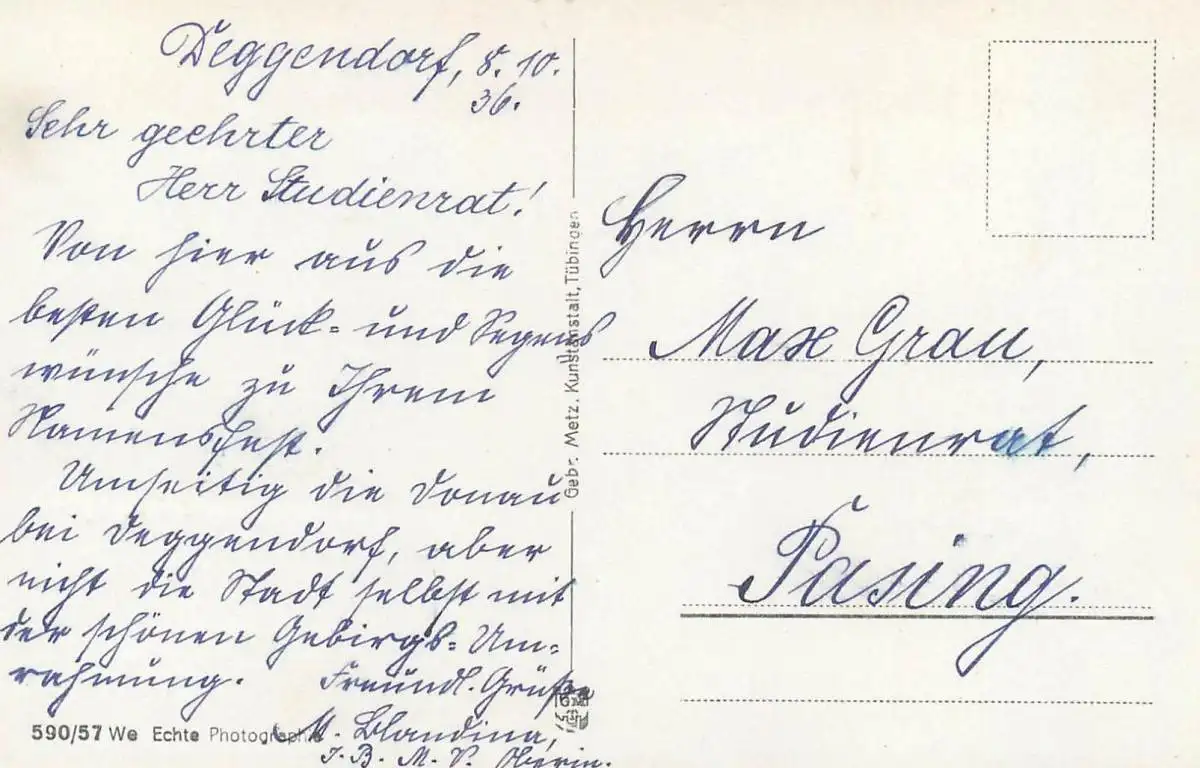 Deggendorf, 8. 10.
36.
Sehr geehrter
Herr Studienrat!
Von hier aus die
besten Glück- und Segens
wünsche zu Ihrem
Namensfest.
Umseitig die Donau
bei Deggendorf, aber
nicht die Stadt selbst mit
der schönen Gebirgs-Um-
rahmung. Freundl. Grüße
M. Blandina,
I. B. M. V. Oberin.
590/57 We Echte Photographie
Gebr. Metz, Kunstanstalt, Tübingen
Herrn
Max Grau,
Studienrat,
Pasing.